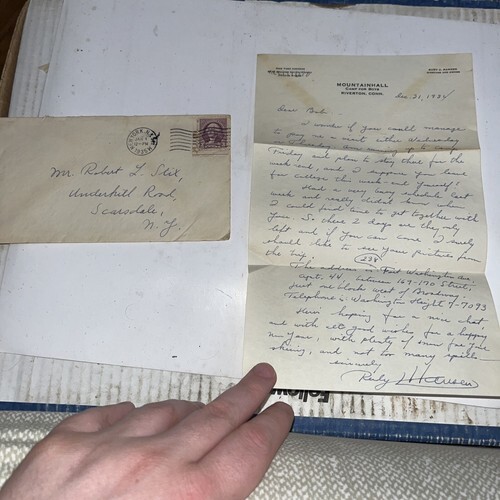 NEW YORK, N.Y.
1935
Mr. Robert L. Stix,
Underhill Road,
Scarsdale,
N. Y.
MOUNTAINHALL
CAMP FOR BOYS
RIVERTON, CONN.
Dec. 31, 1934
Dear Bob:
I wonder if you could manage
to pay me a visit either Wednesday
Thursday
Friday and plan to stay there for the
week-end, and I suppose you leave
for college this week-end yourself?
Had a very busy schedule last
week and really didn't know when
I could find time to get together with
you. So these 2 days are the only
left and if you can come I surely
should like to see your pictures from
the trip.
238
The address is Fort Washington Ave.
Apt. 44, between 169-170 Streets,
just one block west of Broadway.
Telephone is Washington Heights 7-7093
Here's hoping for a nice chat,
and with all good wishes for a happy
new year, with plenty of snow for your
skiing, and not too many spills
sincerely,
Follow